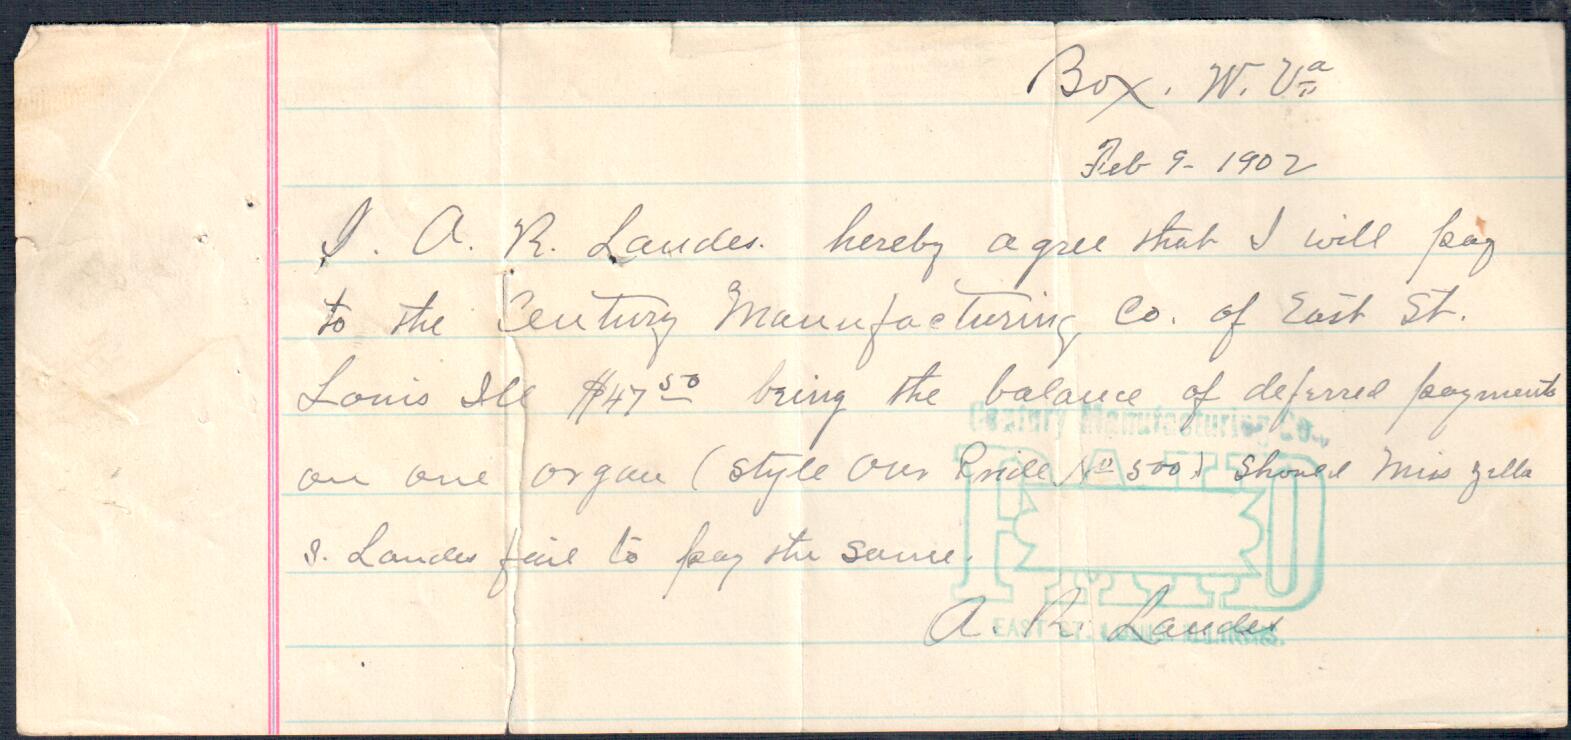 Box. W. Va
Feb 9 - 1902
I. A. R. Landes. hereby agree that I will pay
to the Century Manufacturing Co. of East St.
Louis Ill $47 50 being the balance of deferred payments
on one organ (style Our Pride No 500) Should Miss Zella
S. Landes fail to pay the same.
A. R. Landes
Century Manufacturing Co.,
PAID
EAST ST. LOUIS ILLINOIS.